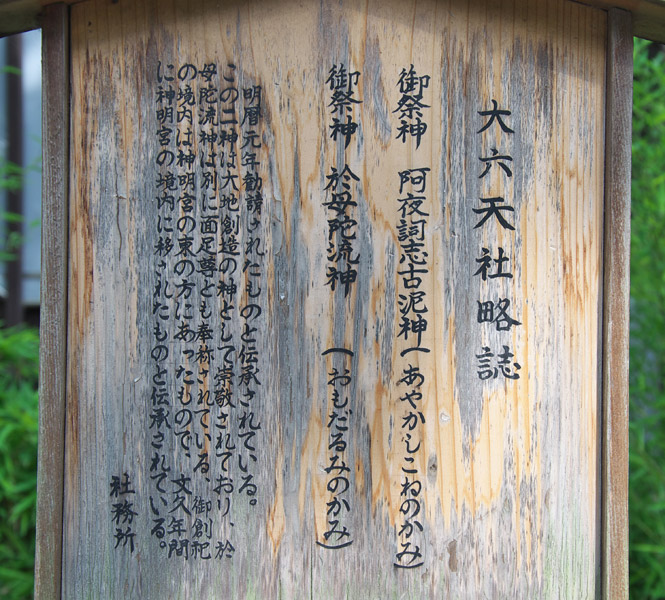 大六天社略誌
御祭神 阿夜訶志古泥神(あやかしこねのかみ)
御祭神 於母陀流神 (おもだるみのかみ)
明暦元年勧請されたものと伝承されている。
この二神は大地創造の神として崇敬されており、於
母陀流神は別に面足尊とも奉称されている、御創祀
の境内は神明宮の東の方にあったもので、文久年間
に神明宮の境内に移されたものと伝承されている。
社務所